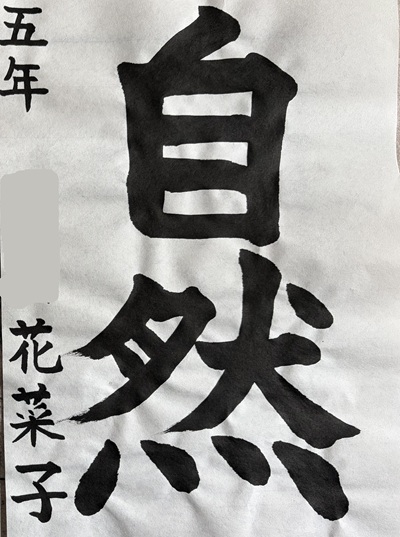 自然
五年 花菜子